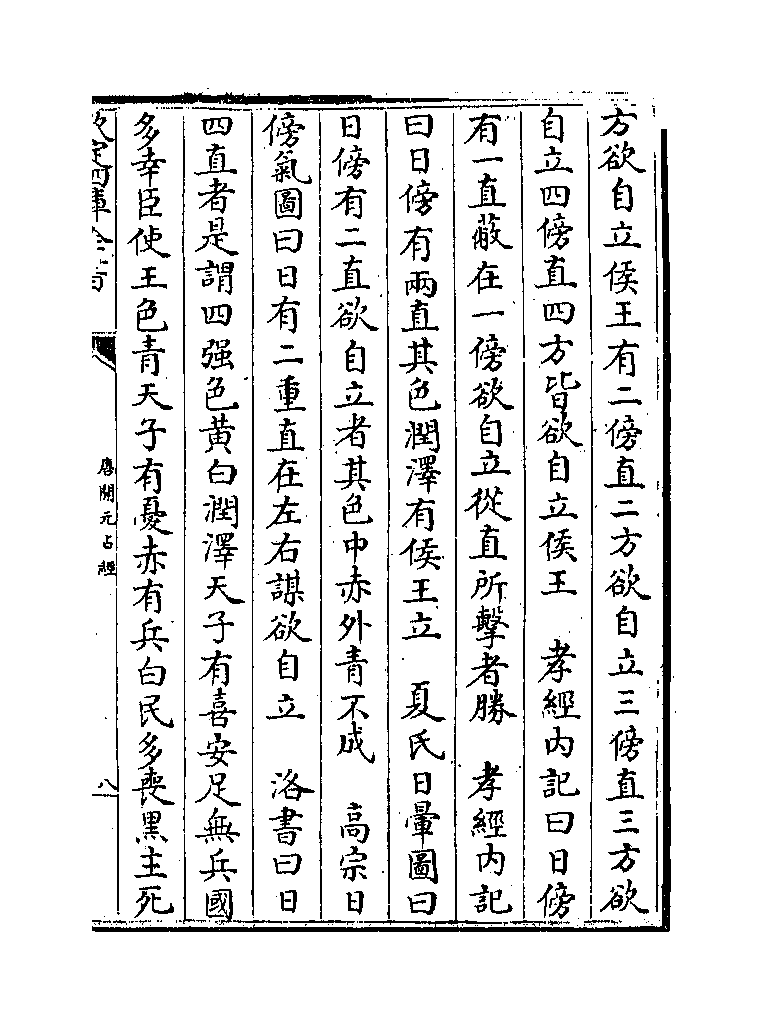 方欲自立侯王有二傍直二方欲自立三傍直三方欲
自立四傍直四方皆欲自立侯王　孝經内記曰日傍
有一直蔽在一傍欲自立從直所擊者勝　孝經内記
曰日傍有兩直其色潤澤有侯王立　夏氏日暈圖曰
日傍有二直欲自立者其色中赤外青不成　高宗日
傍氣圖曰日有二重直在左右謀欲自立　洛書曰日
四直者是謂四强色黄白潤澤天子有喜安足無兵國
多幸臣使王色青天子有憂赤有兵白民多喪黑主死
欽定四庫全書
唐開元占經
八